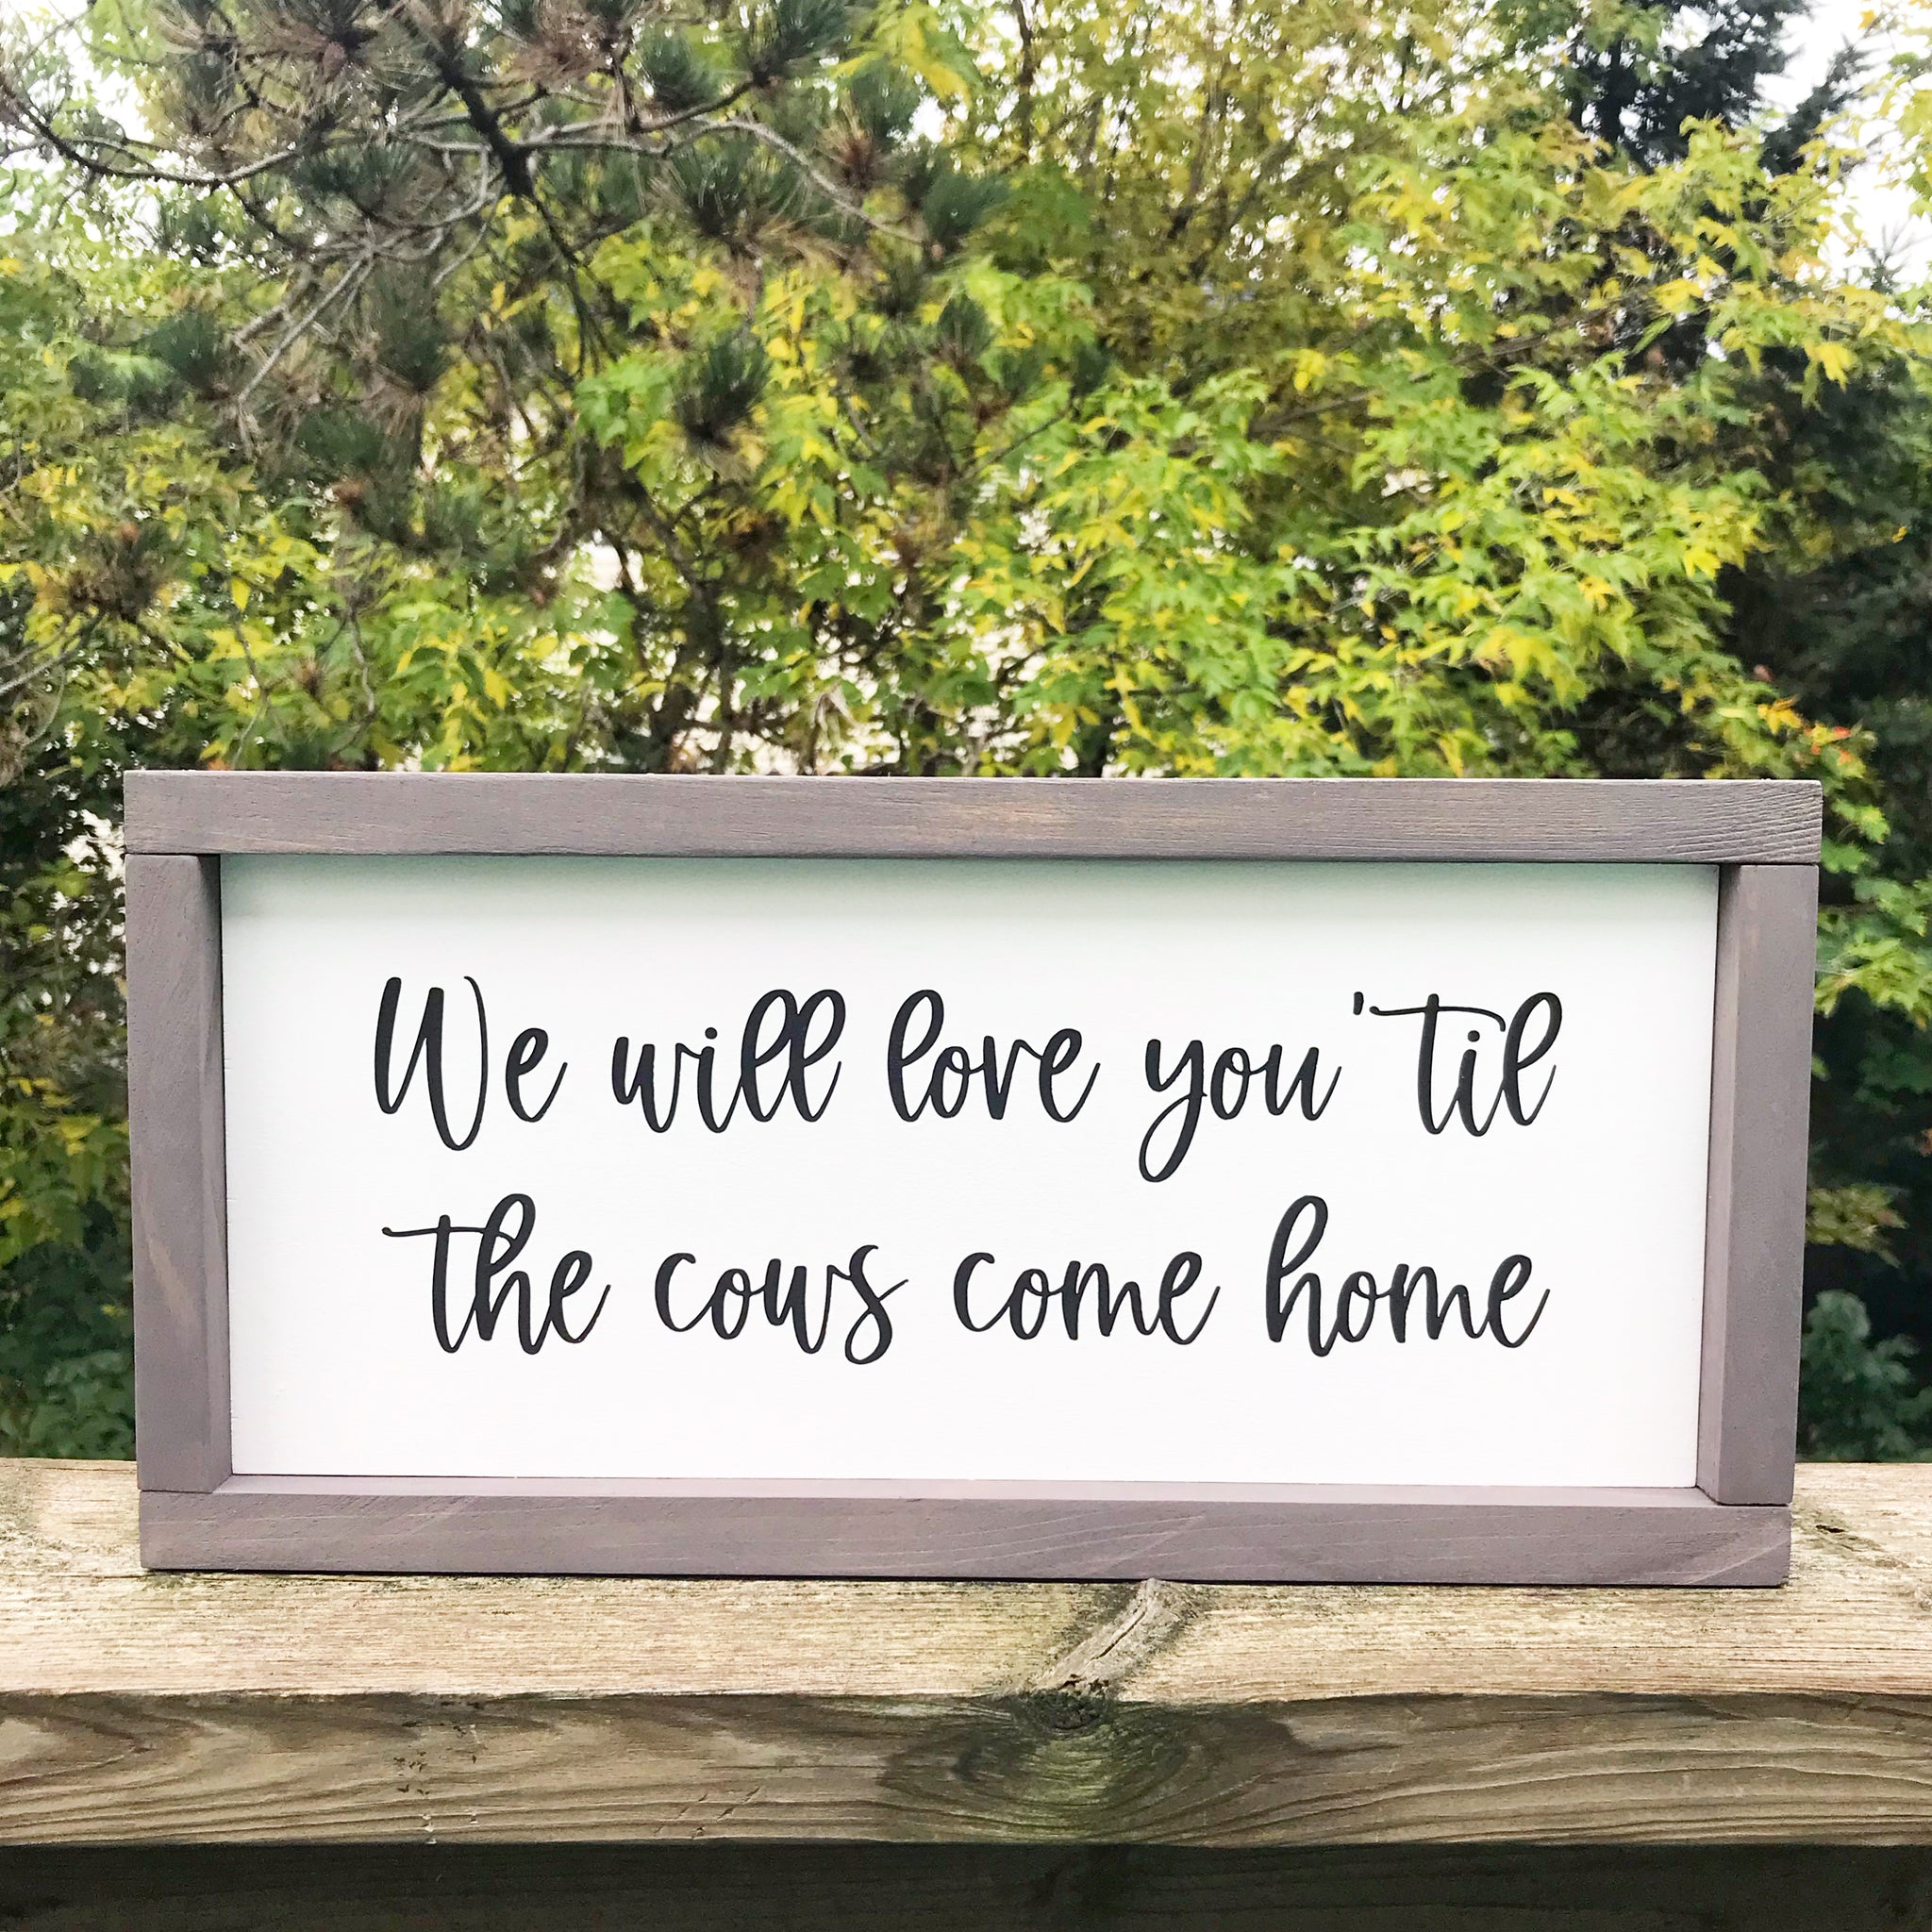 We will love you 'til
the cows come home